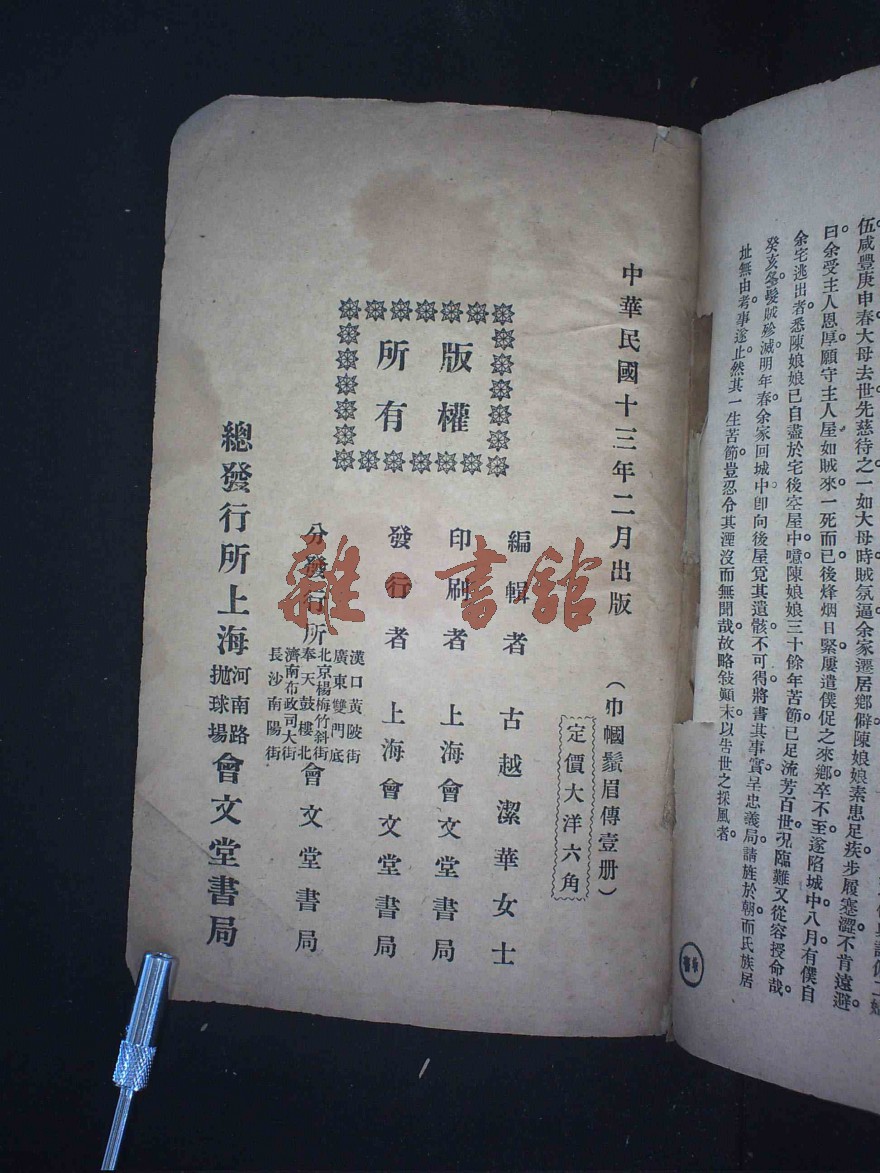 伍咸豐庚申春大母去世先慈待之一如大母時賊氛逼余家遷居鄉僻陳娘娘素患足疾步履蹇澀不肯遠避
曰余受主人恩厚願守主人屋如賊來一死而已後烽烟日緊屢遣僕促之來鄉卒不至遂陷城中八月有僕自
余宅逃出者悉陳娘娘已自盡於宅後空屋中噫陳娘娘三十餘年苦節已足流芳百世況臨難又從容授命哉
癸亥冬髮賊殄滅明年春余家回城中卽向後屋覓其遺骸不可得將書其事實呈忠義局請旌於朝而氏族居
址無由考事遂止然其一生苦節豈忍令其湮沒而無聞哉故略敍顚末以告世之採風者
中華民國十三年二月出版
(巾幗鬚眉傳壹册)
定價大洋六角
版權
所有
編輯者 古越潔華女士
印刷者 上海會文堂書局
發行者 上海會文堂書局
分發行所
漢口黃陂街
廣東雙門底
北京楊梅竹斜街
奉天鼓樓北
濟南布政司大街
長沙南陽街
會文堂書局
總發行所上海
河南路
抛球場
會文堂書局
雜·書館